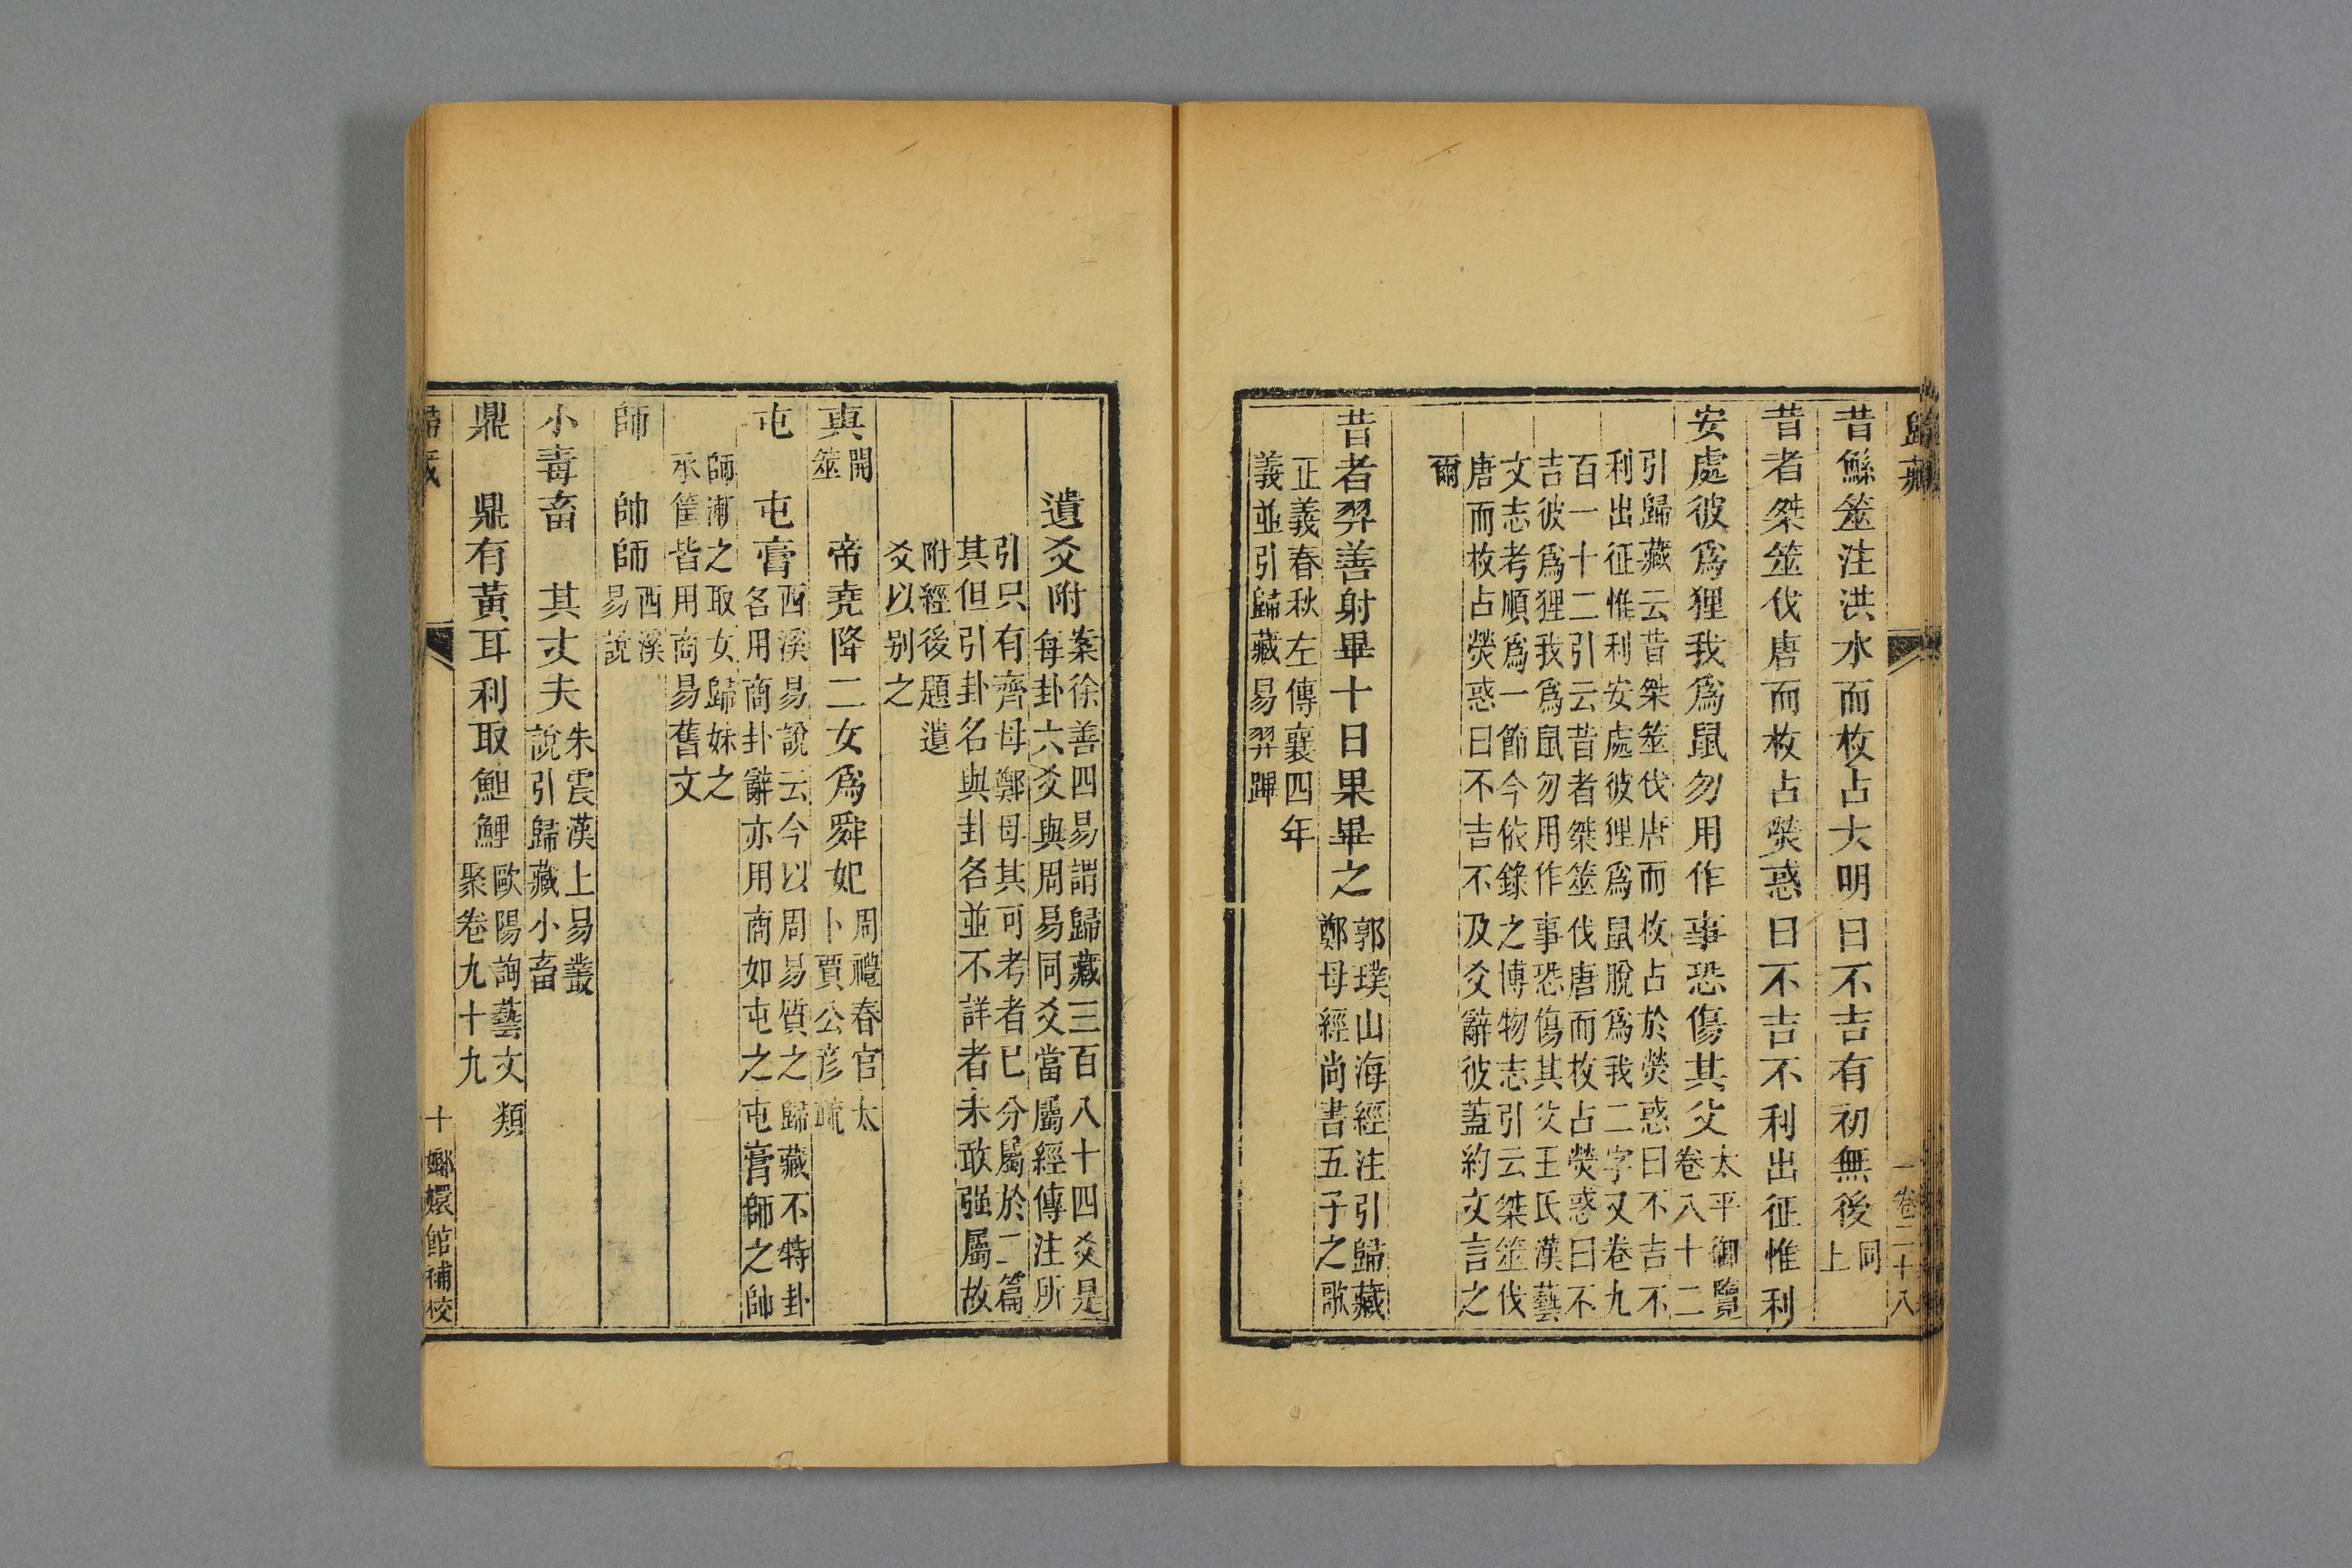 歸藏
卷二十八
昔鯀筮注洪水而枚占大明曰不吉有初無後同上
昔者桀筮伐唐而枚占熒惑曰不吉不利出征惟利
安處彼爲狸我爲鼠勿用作事恐傷其父太平御覽
卷八十二
引歸藏云昔桀筮伐唐而枚占於熒惑曰不吉不
利出征惟利安處彼狸爲鼠脫爲我二字又卷九
百一十二引云昔者桀筮伐唐而枚占熒惑曰不
吉彼爲狸我爲鼠勿用作事恐傷其父王氏漢藝
文志考順爲一節今依錄之博物志引云桀筮伐
唐而枚占熒惑曰不吉不及爻辭彼蓋約文言之
爾
昔者羿善射畢十日果畢之郭璞山海經注引歸藏
鄭母經尚書五子之歌
正義春秋左傳襄四年
義並引歸藏易羿彃
遺爻附案徐善四易謂歸藏三百八十四爻是
每卦六爻與周易同爻當屬經傳注所
引只有齊母鄭母其可考者已分屬於二篇
其但引卦名與卦各並不詳者未敢强屬故
附經後題遺
爻以別之
㒷開筮
帝堯降二女爲舜妃周禮春官太
卜賈公彥疏
屯
屯膏西溪易說云今以周易質之歸藏不特卦
名用商卦辭亦用商如屯之屯膏師之帥
師漸之取女歸妹之
承筐皆用商易舊文
師
帥師西溪
易說
小毒畜
其丈夫朱震漢上易叢
說引歸藏小畜
鼎
鼎有黃耳利取䱇鯉歐陽詢藝文類
聚卷九十九
歸藏
十
嫏嬛館補校